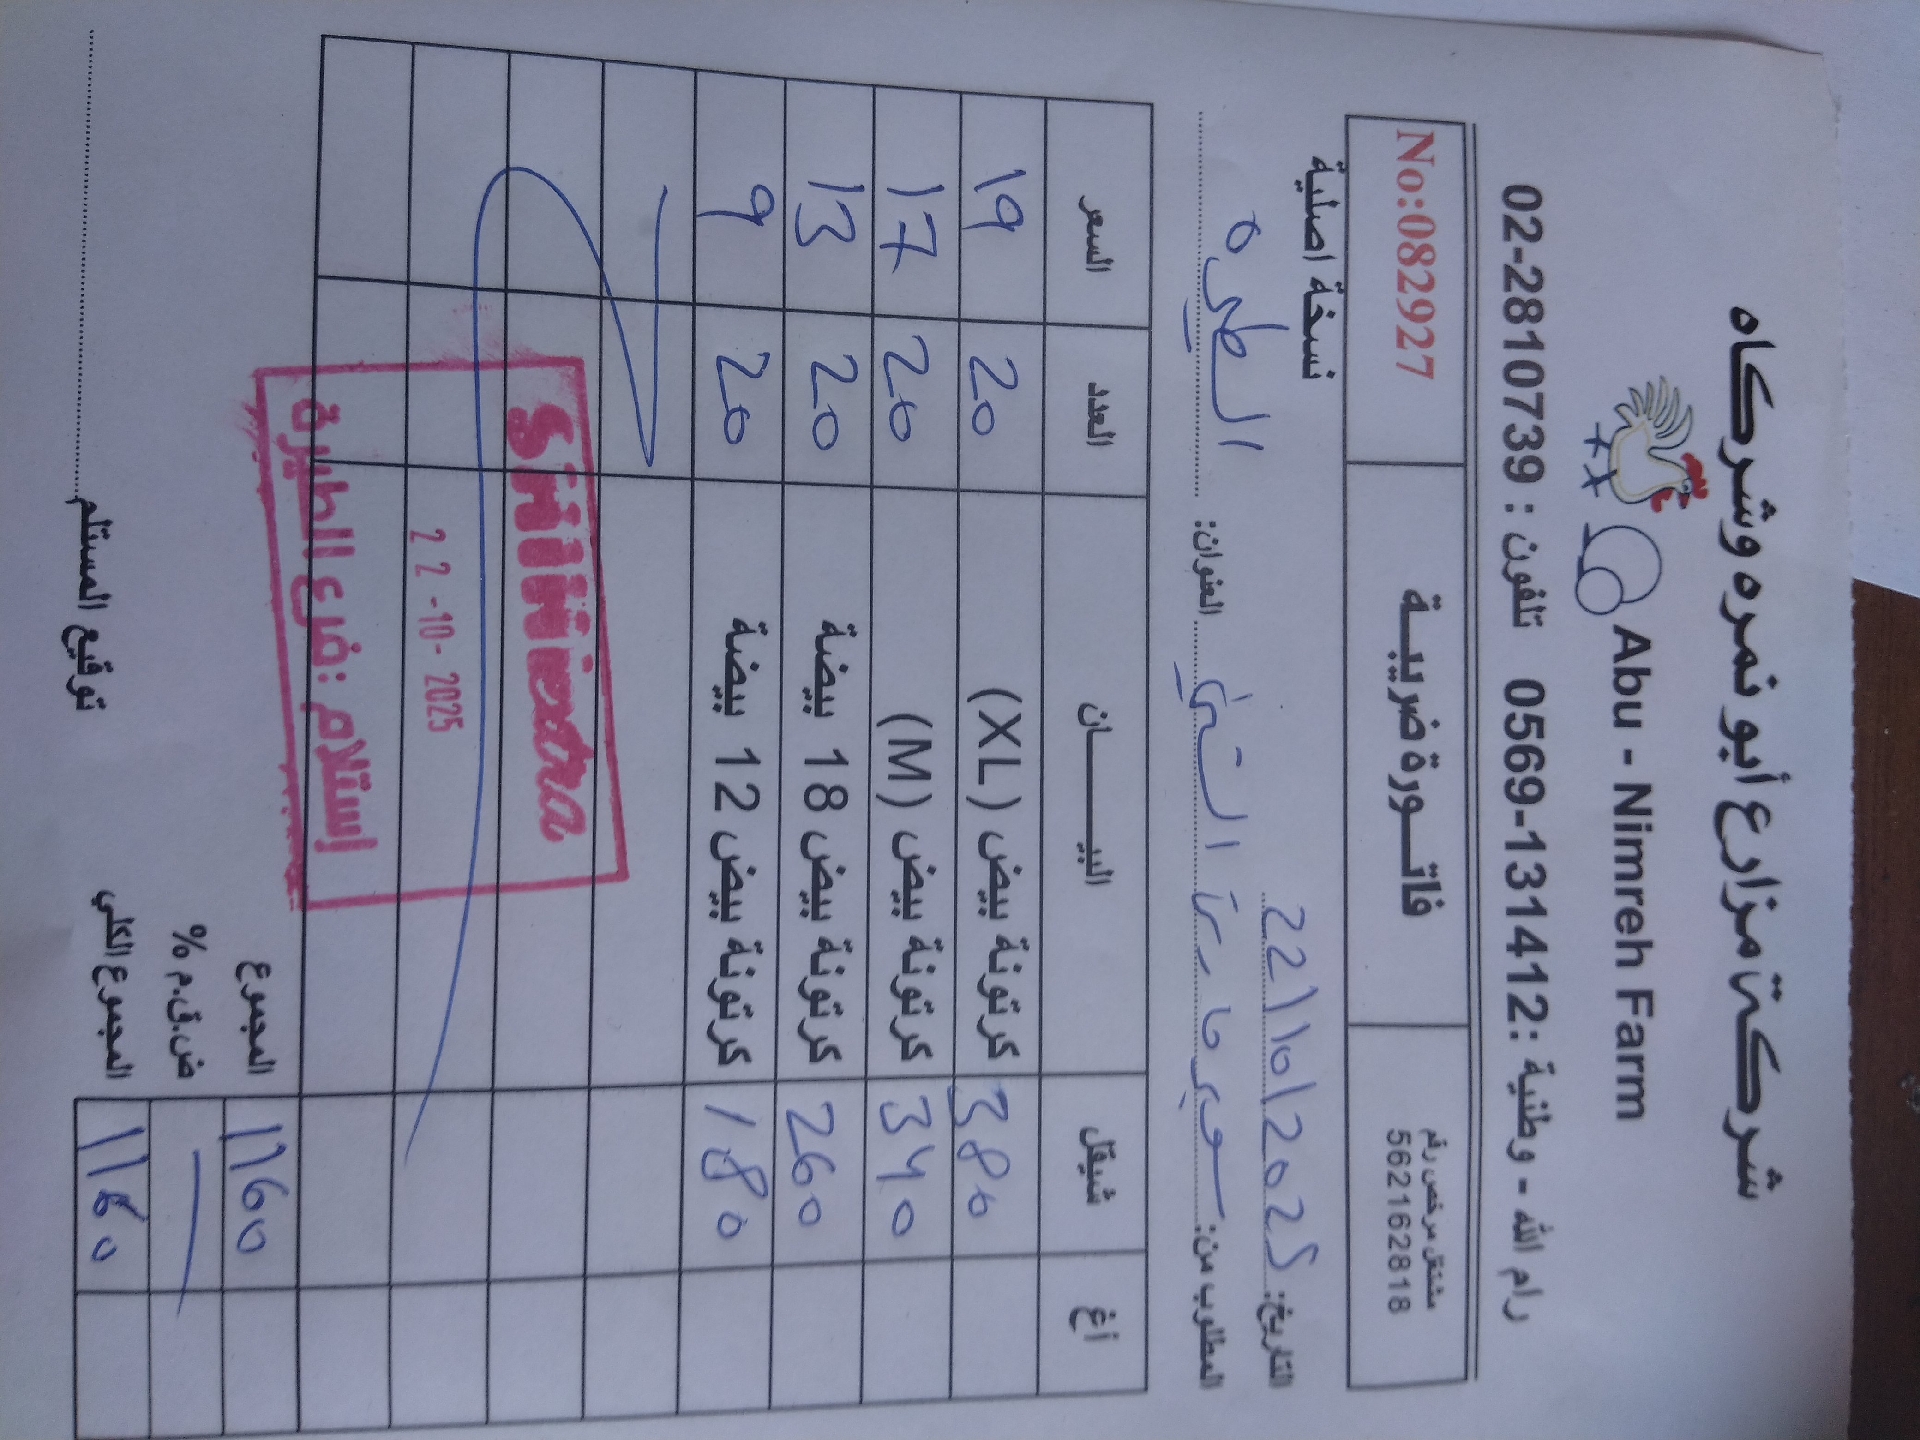 شركة مزارع أبو نمره وشركاه
Abu - Nimreh Farm
رام الله - وطنية :0569-131412 تلفون : 02-2810739
مشتغل مرخص رقم
562162818
فاتـورة ضريبـة
No:082927
نسخة اصلية
التاريخ: 22/10/2025
المطلوب من: سوبرماركت العنوان: الطيره
أغ شيقل البيـــــان العدد السعر
380 كرتونة بيض (XL) 20 19
340 كرتونة بيض (M) 20 17
260 كرتونة بيض 18 بيضة 20 13
180 كرتونة بيض 12 بيضة 20 9
extra
2 2 -10- 2025
إستلام :فرع الطيرة
المجموع 1160
ض.ق.م %
المجموع الكلي 1160
توقيع المستلم